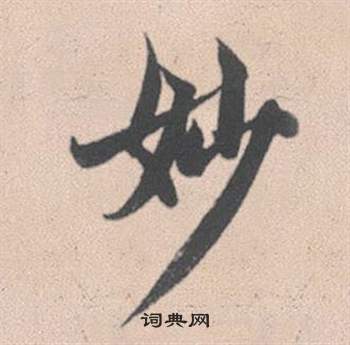 妙
词典网